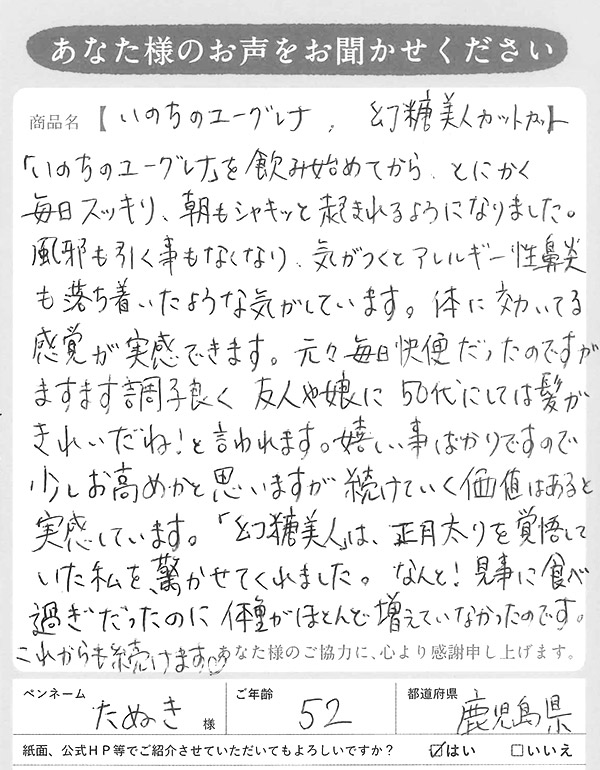 あなた様のお声をお聞かせください
商品名【いのちのユーグレナ, 幻糖美人カットカット】
「いのちのユーグレナ」を飲み始めてから、とにかく
毎日スッキリ、朝もシャキッと起きれるようになりました。
風邪も引く事もなくなり、気がつくとアレルギー性鼻炎
も落ち着いたような気がしています。体に効いてる
感覚が実感できます。元々毎日快便だったのですが
ますます調子良く友人や娘に50代にしては髪が
きれいだね!と言われます。嬉しい事ばかりですので
少しお高めかと思いますが続けていく価値はあると
実感しています。「幻糖美人」は、正月太りを覚悟して
いた私を、驚かせてくれました。なんと!見事に食べ
過ぎだったのに体重がほとんど増えていなかったのです。
これからも続けます♡ あなた様のご協力に、心より感謝申し上げます。
ペンネーム たぬき 様 ご年齢 52 都道府県 鹿児島県
紙面、公式HP等でご紹介させていただいてもよろしいですか? ☑はい □いいえ